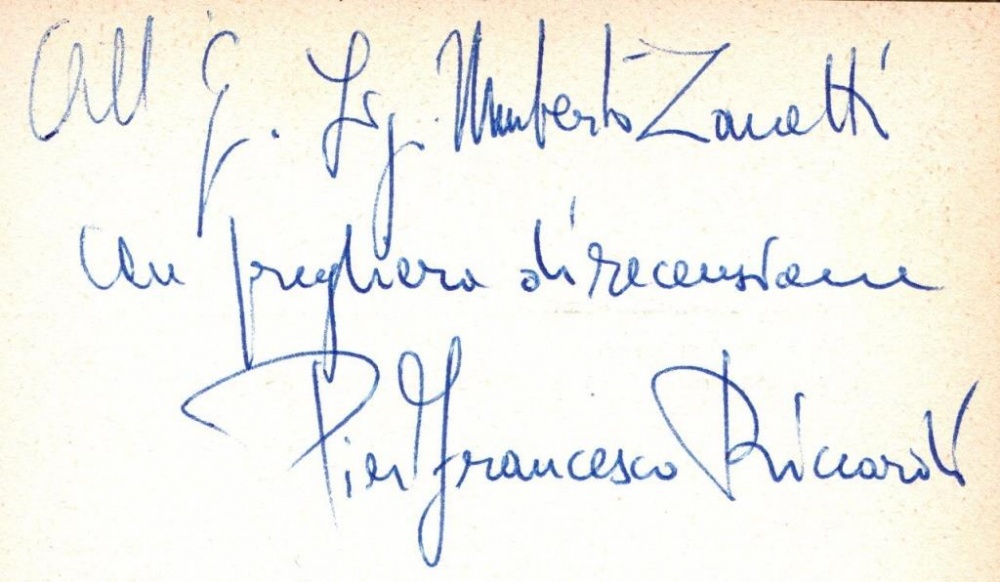 All' Eg. Sig. Umberto Zanetti
con preghiera di recensione
Pier Francesco Riccardi